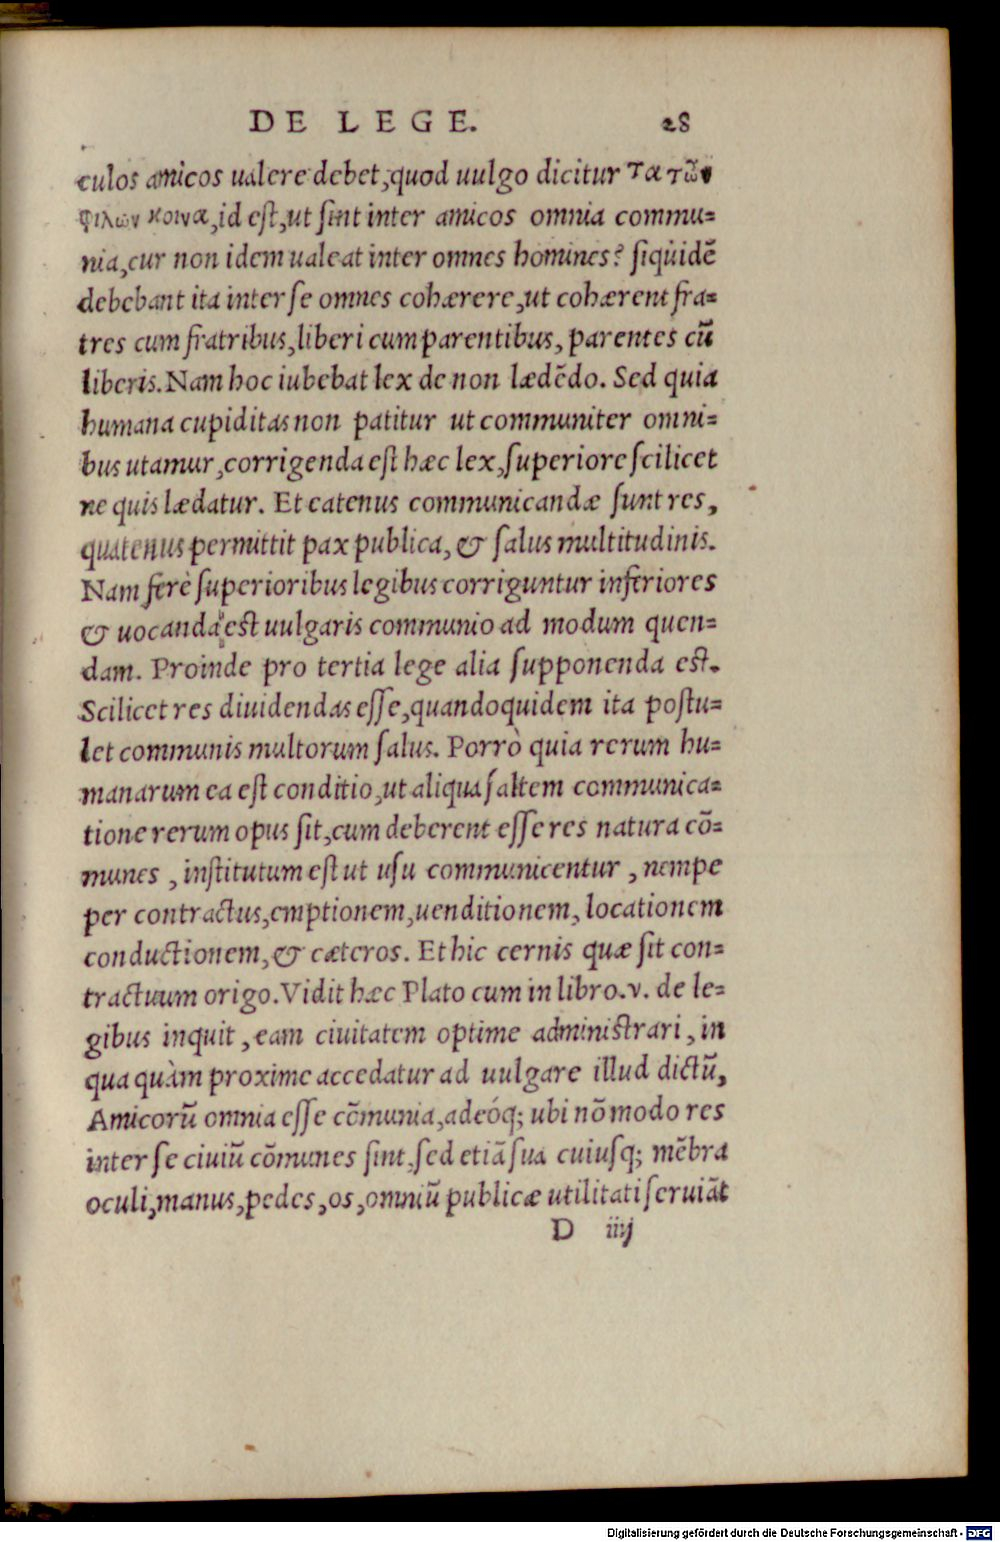 DE LEGE. 28
culos amicos ualere debet, quod uulgo dicitur τα τῶν
φιλων κοινα, id est, ut sint inter amicos omnia commu=
nia, cur non idem ualeat inter omnes homines? siquidē
debebant ita inter se omnes cohærere, ut cohærent fra=
tres cum fratribus, liberi cum parentibus, parentes cū
liberis. Nam hoc iubebat lex de non lædēdo. Sed quia
humana cupiditas non patitur ut communiter omni=
bus utamur, corrigenda est hæc lex, superiore scilicet
ne quis lædatur. Et eatenus communicandæ sunt res,
quatenus permittit pax publica, & salus multitudinis.
Nam ferè superioribus legibus corriguntur inferiores
& uocanda est uulgaris communio ad modum quen=
dam. Proinde pro tertia lege alia supponenda est.
Scilicet res diuidendas esse, quandoquidem ita postu=
let communis multorum salus. Porrò quia rerum hu=
manarum ea est conditio, ut aliqua saltem communica=
tione rerum opus sit, cum deberent esse res natura cō=
munes, institutum est ut usu communicentur, nempe
per contractus, emptionem, uenditionem, locationem
conductionem, & cæteros. Et hic cernis quæ sit con=
tractuum origo. Vidit hæc Plato cum in libro .v. de le=
gibus inquit, eam ciuitatem optime administrari, in
qua quàm proxime accedatur ad uulgare illud dictū,
Amicorū omnia esse cōmunia, adeóq; ubi nō modo res
inter se ciuiū cōmunes sint, sed etiā sua cuiusq; mēbra
oculi, manus, pedes, os, omniū publicæ utilitati seruiāt
D iiij
Digitalisierung gefördert durch die Deutsche Forschungsgemeinschaft - DFG